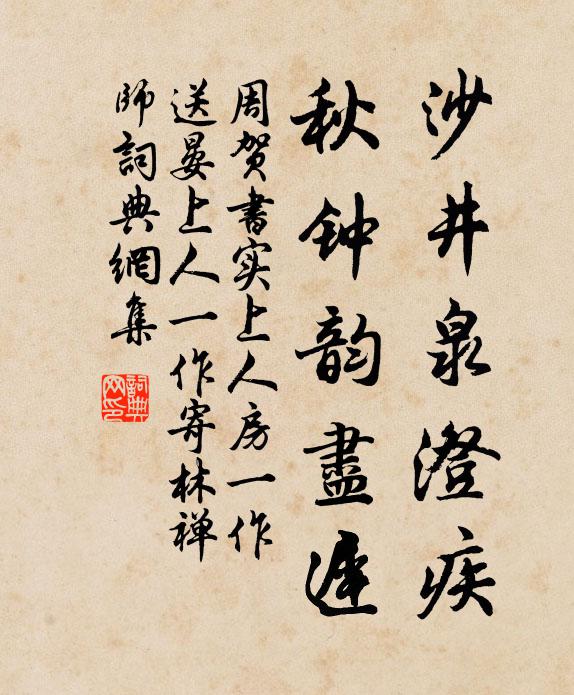 沙井泉澄疾
秋钟韵盡遲
周贺書实上人房一作
送晏上人一作寄林禅
師詞典網集
詞典
网印